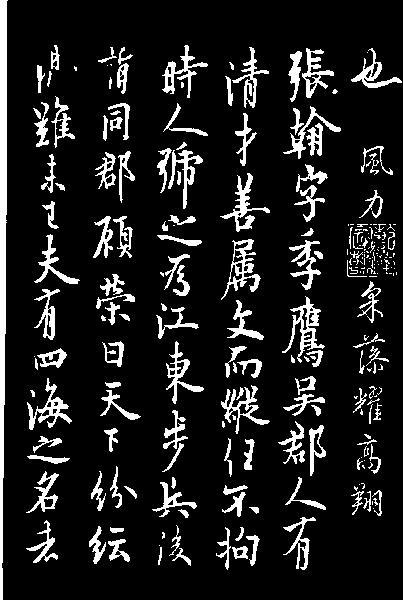 也 風力 藻耀高翔
張翰字季鷹吳郡人有
清才善属文而縱任不拘
時人號之為江東步兵後
謂同郡顧榮曰天下紛紜
禍難未已夫有四海之名者